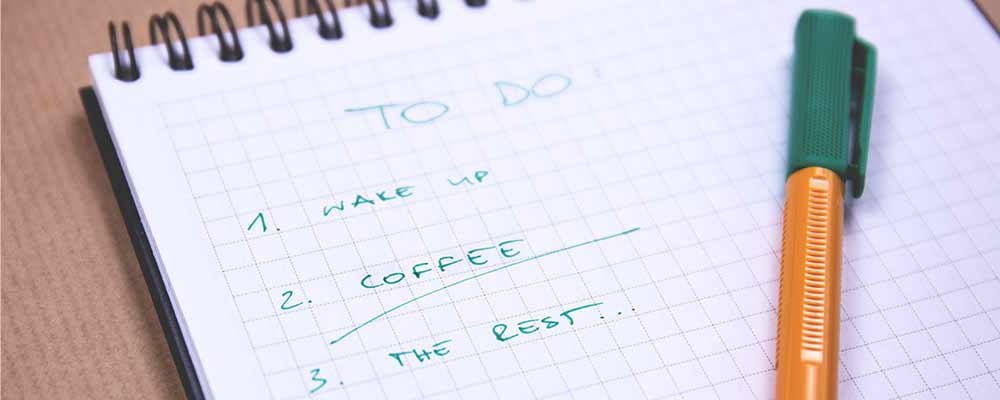 TO DO :
1. WAKE UP
2. COFFEE
3. THE REST...